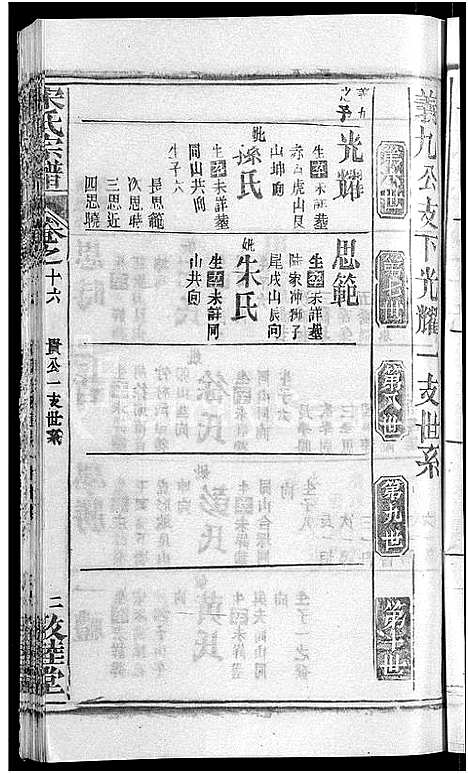 義九公支下光耀一支世系
第六世
第七世
第八世
第九世
第十世
義九
之子
光耀
生卒未詳墓
赤石虎山艮
山坤向
妣
孫氏
生卒未詳墓
同山共向
生子六
長思範
次思時
三思近
四思曉
思範
生卒未詳墓
陸家沖獅子
尾戌山辰向
妣
朱氏
生卒未詳同
山共向
宋氏宗譜
卷之十六
貴公一支世系
二
敦睦堂